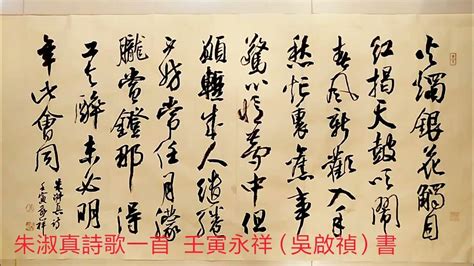 火燭銀花觸目
紅揭天鼓吹鬧
春風新歡入手
愁忙裏舊事
驚心憶夢中但
願暫成人繾綣
不妨常任月朦
朧賞鐙那得
工夫醉未必明
年此會同
朱淑真詩
壬寅永祥
朱淑真詩歌一首 壬寅永祥(吳啟禎)書